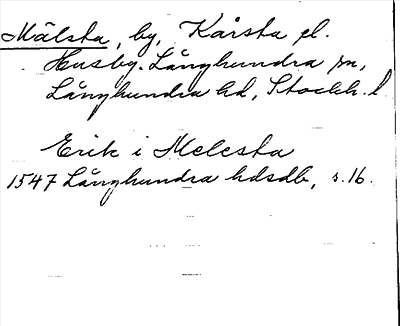 Mälsta, by, Kårsta pl.
Husby-Långhundra sn,
Långhundra hd, Stockh. l
Erik i Melesta
1547 Långhundra hdsdb, s. 16.